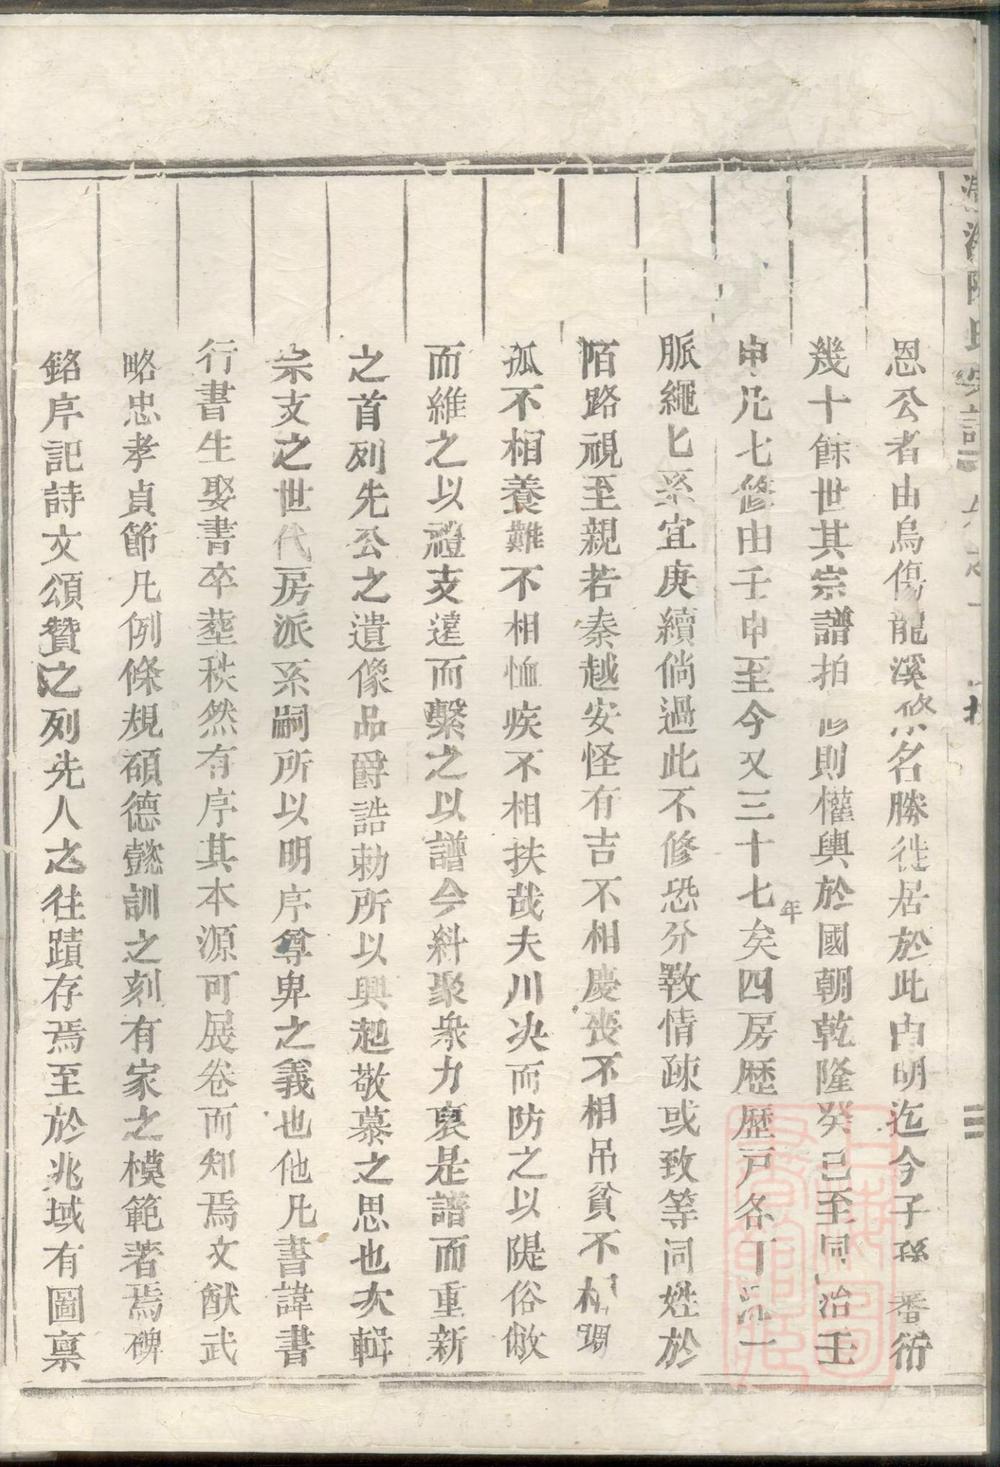 恩公者由烏傷龍溪悠名勝徙居於此由明迄今子孫番衍
幾十餘世其宗譜拍修則權輿於國朝乾隆癸巳至同治壬
申凡七修由壬申至今又三十七年矣四房歷歷戸各丁派一
脈繩匕系宜庚續倘過此不修恐分斁情疎或致等同姓於
陌路視至親若秦越安怪有吉不相慶喪不相吊貧不相賙
孤不相養難不相恤疾不相扶哉夫川决而防之以隄俗敝
而維之以禮支遠而繫之以譜今糾聚衆力裒是譜而重新
之首列先公之遺像品爵誥勅所以興起敬慕之思也次輯
宗支之世代房派系嗣所以明序尊卑之義也他凡書諱書
行書生娶書卒塟秩然有序其本源可展卷而知焉文猷武
略忠孝貞節凡例條規碩德懿訓之刻有家之模範著焉碑
銘序記詩文頌贊之列先人之往蹟存焉至於兆域有圖禀